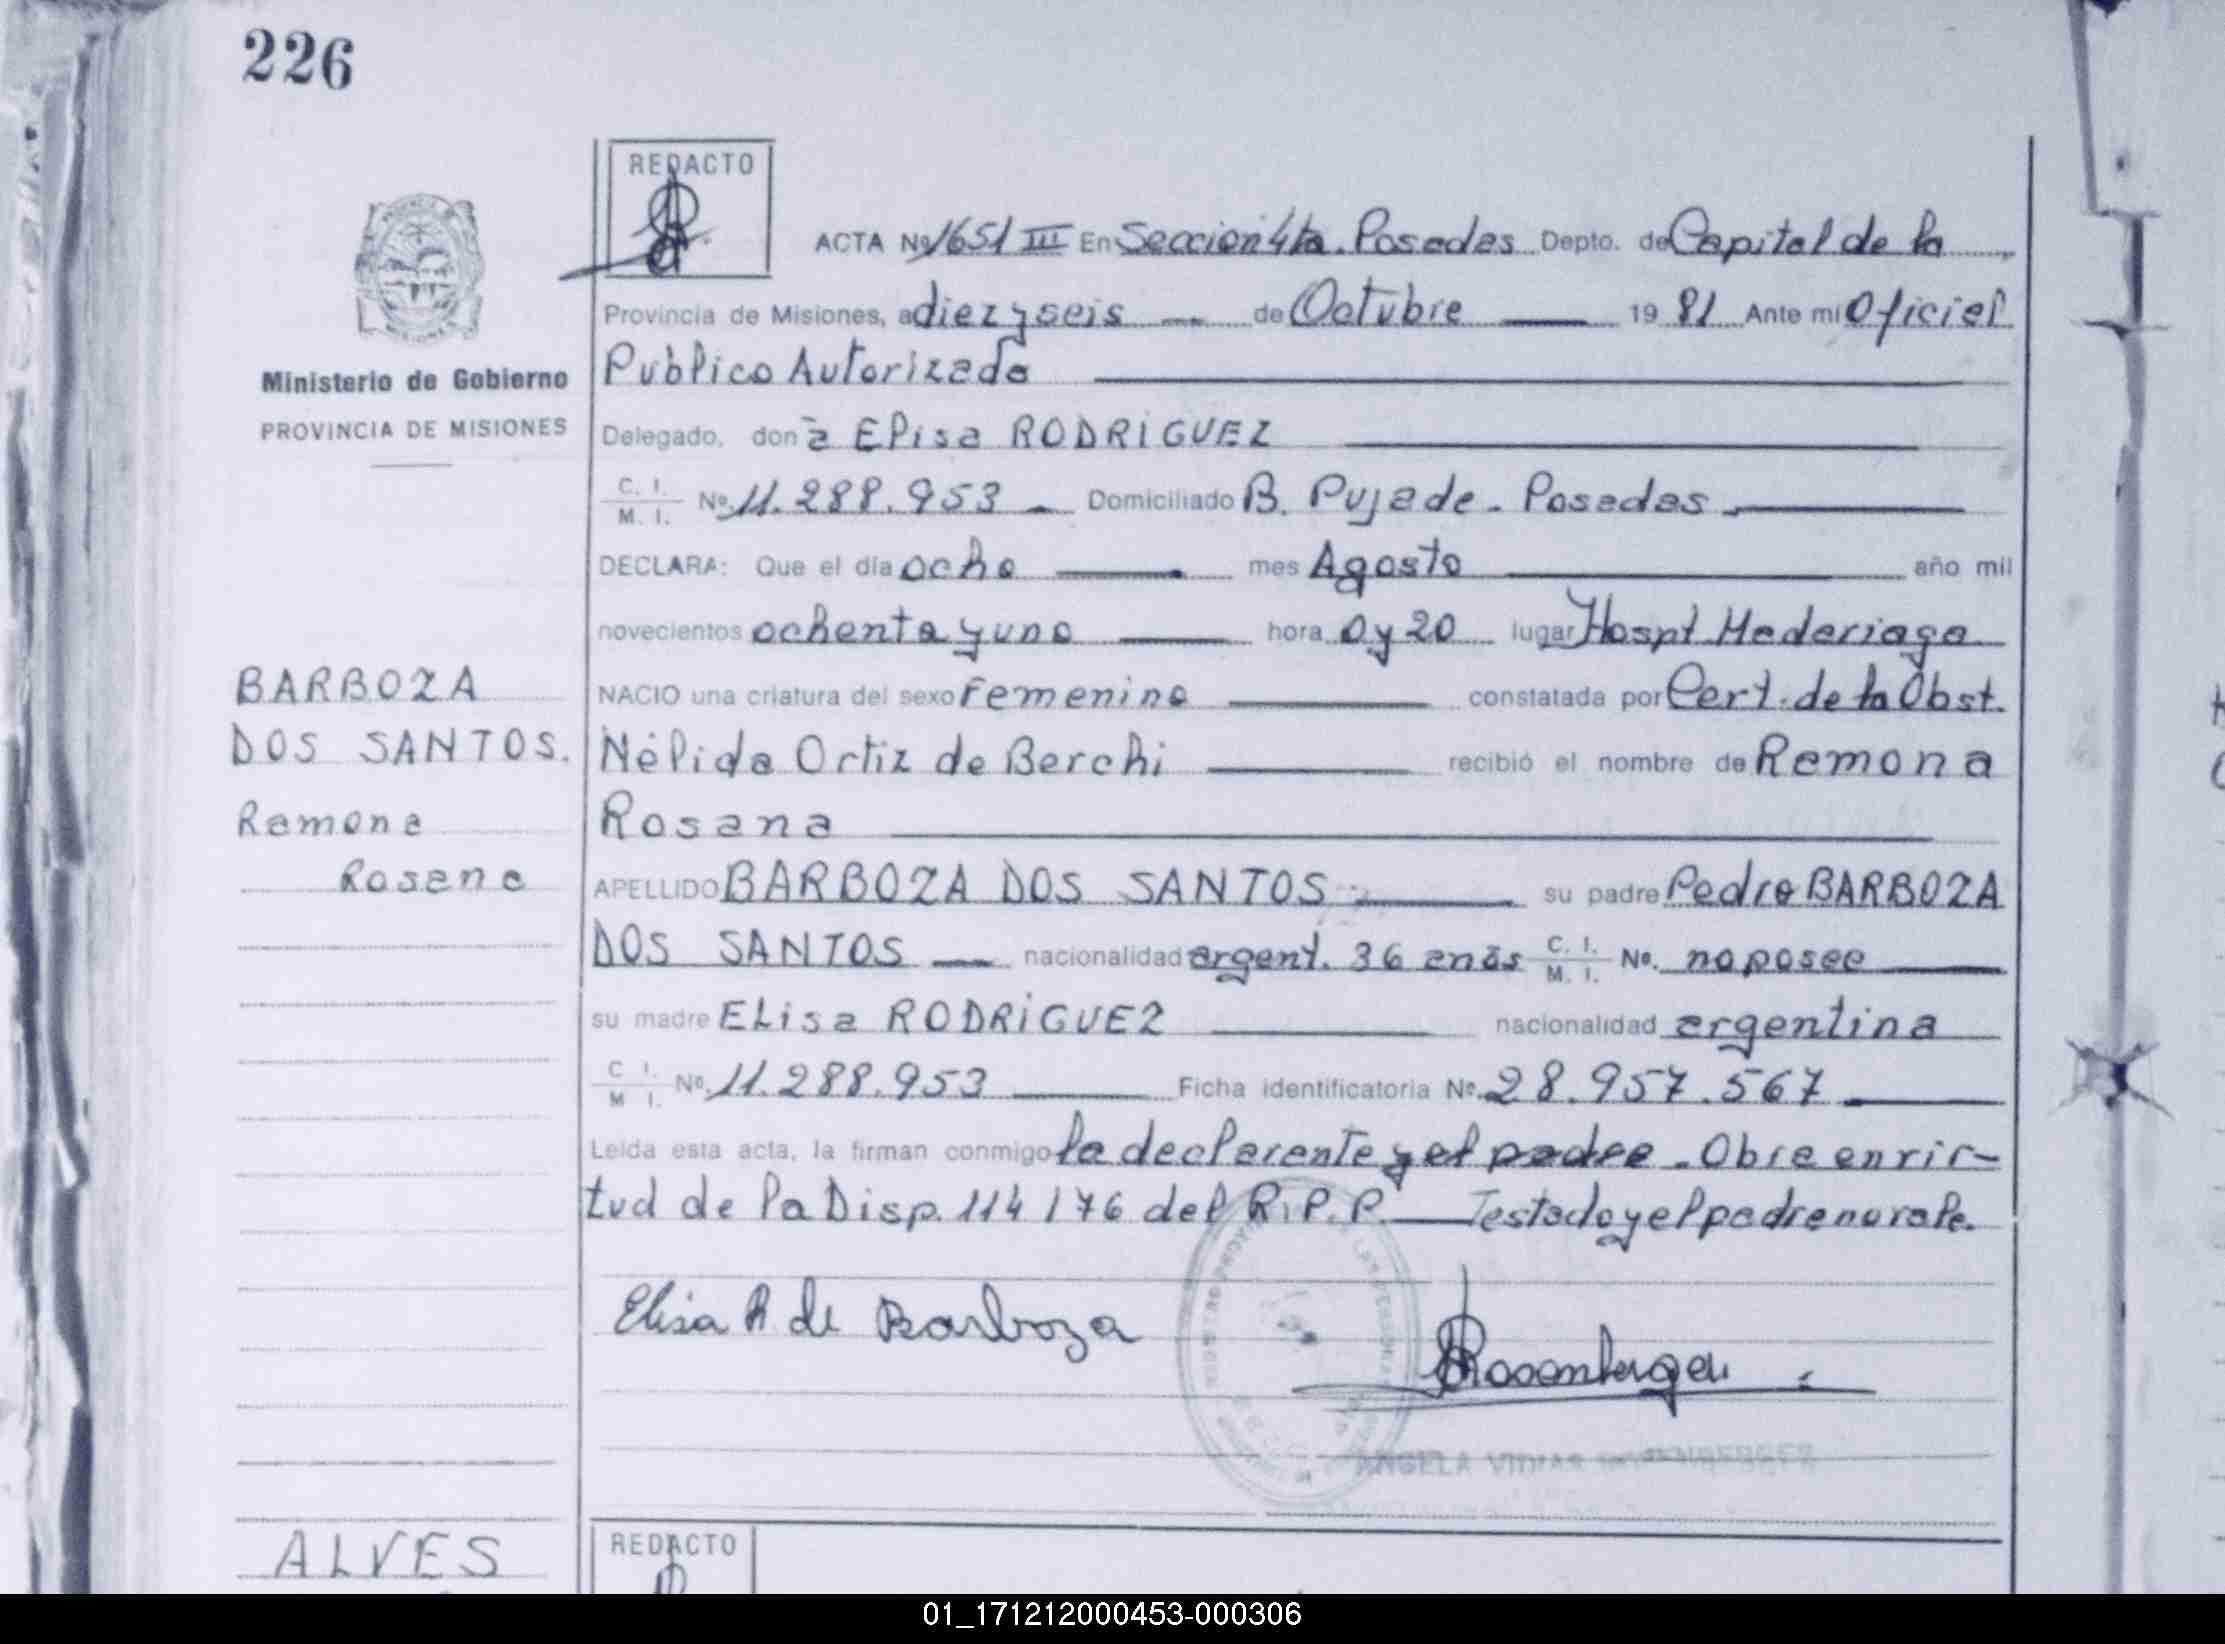 226
REDACTO
ACTA Nº 1651 III En Seccion 4ta. Posadas Depto. de Capital de la
Provincia de Misiones, a diez y seis de Octubre 19 81 Ante mí Oficial
Publico Autorizado
Ministerio de Gobierno
PROVINCIA DE MISIONES
Delegado, don a Elisa RODRIGUEZ
C. I. M. I. Nº 11.288.953 Domiciliado B. Pujade. Posadas
DECLARA: Que el día ocho mes Agosto año mil
novecientos ochenta y uno hora 0 y 20 lugar Hospt Madariaga
BARBOZA
NACIO una criatura del sexo Femenino constatada por Cert. de la Obst.
DOS SANTOS.
Nélida Ortiz de Berchi recibió el nombre de Ramona
Ramona
Rosana
Rosana
APELLIDO BARBOZA DOS SANTOS su padre Pedro BARBOZA
DOS SANTOS nacionalidad argent. 36 años C. I. M. I. Nº. no posee
su madre ELisa RODRIGUEZ nacionalidad argentina
C I. M I. Nº. 11.288.953 Ficha identificatoria Nº. 28.957.567
Leída esta acta, la firman conmigo la declarante y el padre. Obra en vir-
tud de la Disp. 114 / 76 del R. P. P. Testado y el padre no vale.
Elisa R de Barboza
Rosenberger
ANGELA
ALVES
REDACTO
01_171212000453-000306